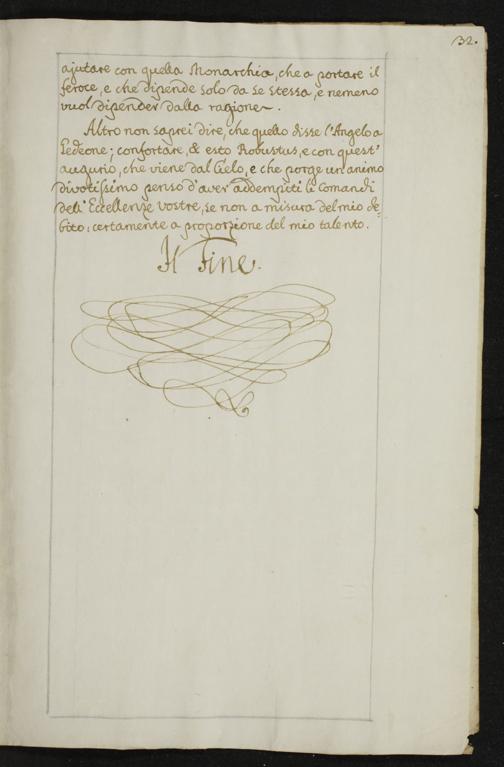 32.
ajutare con quella Monarchia, che a portare il
feroce, e che dipende solo da se stessa, e nemeno
vuol dipender dalla ragione.
Altro non saprei dire, che quello disse l'Angelo a
Gedeone; confortare, & esto Robustus, e con quest'
augurio, che viene dal Cielo, e che porge un animo
divotissimo penso d'aver addempiti li Comandi
dell' Eccellenze vostre, se non a misura del mio de=
bito: certamente a proporzione del mio talento.
Il Fine.